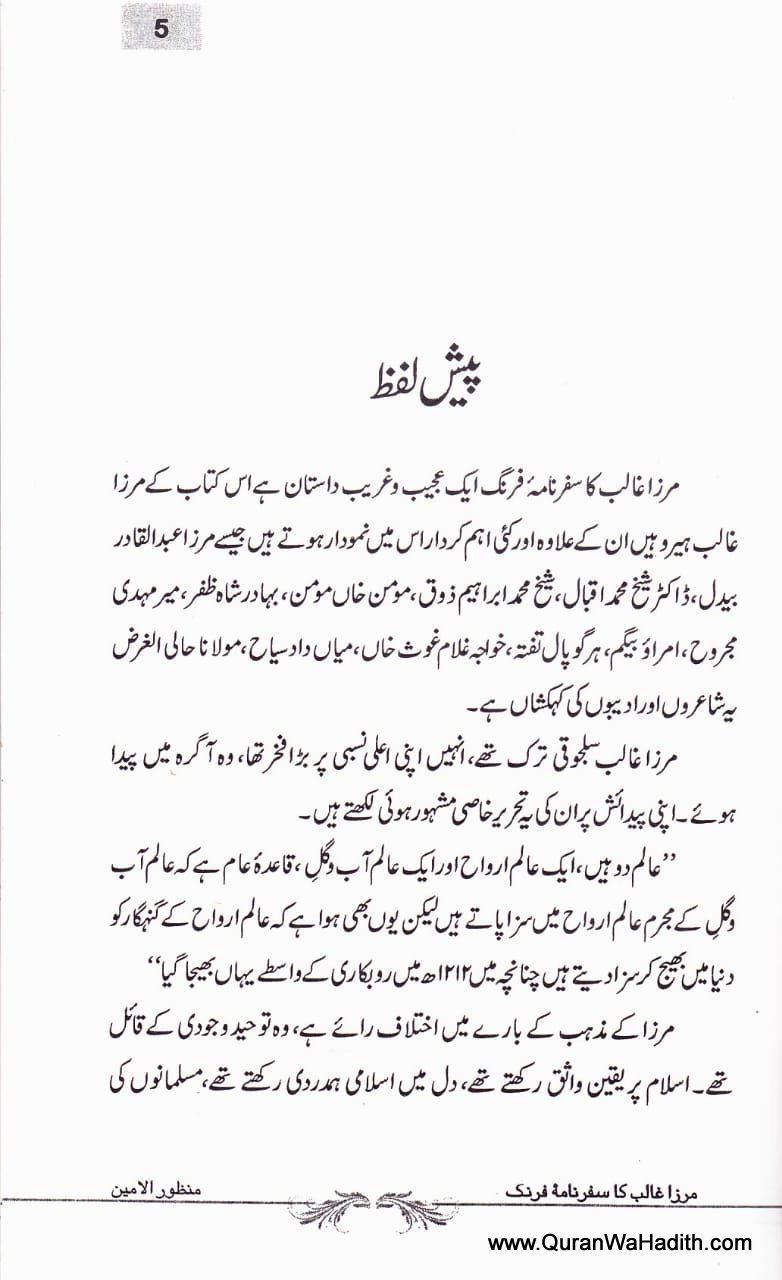 5
پیش لفظ
مرزا غالب کا سفر نامۂ فرنگ ایک عجیب و غریب داستان ہے اس کتاب کے مرزا
غالب ہیرو ہیں ان کے علاوہ اور کئی اہم کردار اس میں نمودار ہوتے ہیں جیسے مرزا عبدالقادر
بیدل، ڈاکٹر شیخ محمد اقبال، شیخ محمد ابراہیم ذوق، مومن خاں مومن، بہادر شاہ ظفر، میر مہدی
مجروح، امراؤ بیگم، ہرگوپال تفتہ، خواجہ غلام غوث خاں، میاں داد سیاح، مولانا حالی الغرض
یہ شاعروں اور ادیبوں کی کہکشاں ہے۔
مرزا غالب سلجوقی ترک تھے، انہیں اپنی اعلیٰ نسبی پر بڑا فخر تھا، وہ آگرہ میں پیدا
ہوئے۔ اپنی پیدائش پر ان کی یہ تحریر خاصی مشہور ہوئی لکھتے ہیں۔
”عالم دو ہیں، ایک عالم ارواح اور ایک عالم آب و گِل، قاعدۂ عام ہے کہ عالم آب
و گِل کے مجرم عالم ارواح میں سزا پاتے ہیں لیکن یوں بھی ہوا ہے کہ عالم ارواح کے گنہگار کو
دنیا میں بھیج کر سزا دیتے ہیں چنانچہ میں ۱۲۱۲ھ میں روبکاری کے واسطے یہاں بھیجا گیا“
مرزا کے مذہب کے بارے میں اختلاف رائے ہے، وہ توحید وجودی کے قائل
تھے۔ اسلام پر یقین واثق رکھتے تھے، دل میں اسلامی ہمدردی رکھتے تھے، مسلمانوں کی
مرزا غالب کا سفر نامۂ فرنگ
منظور الامین
www.QuranWaHadith.com